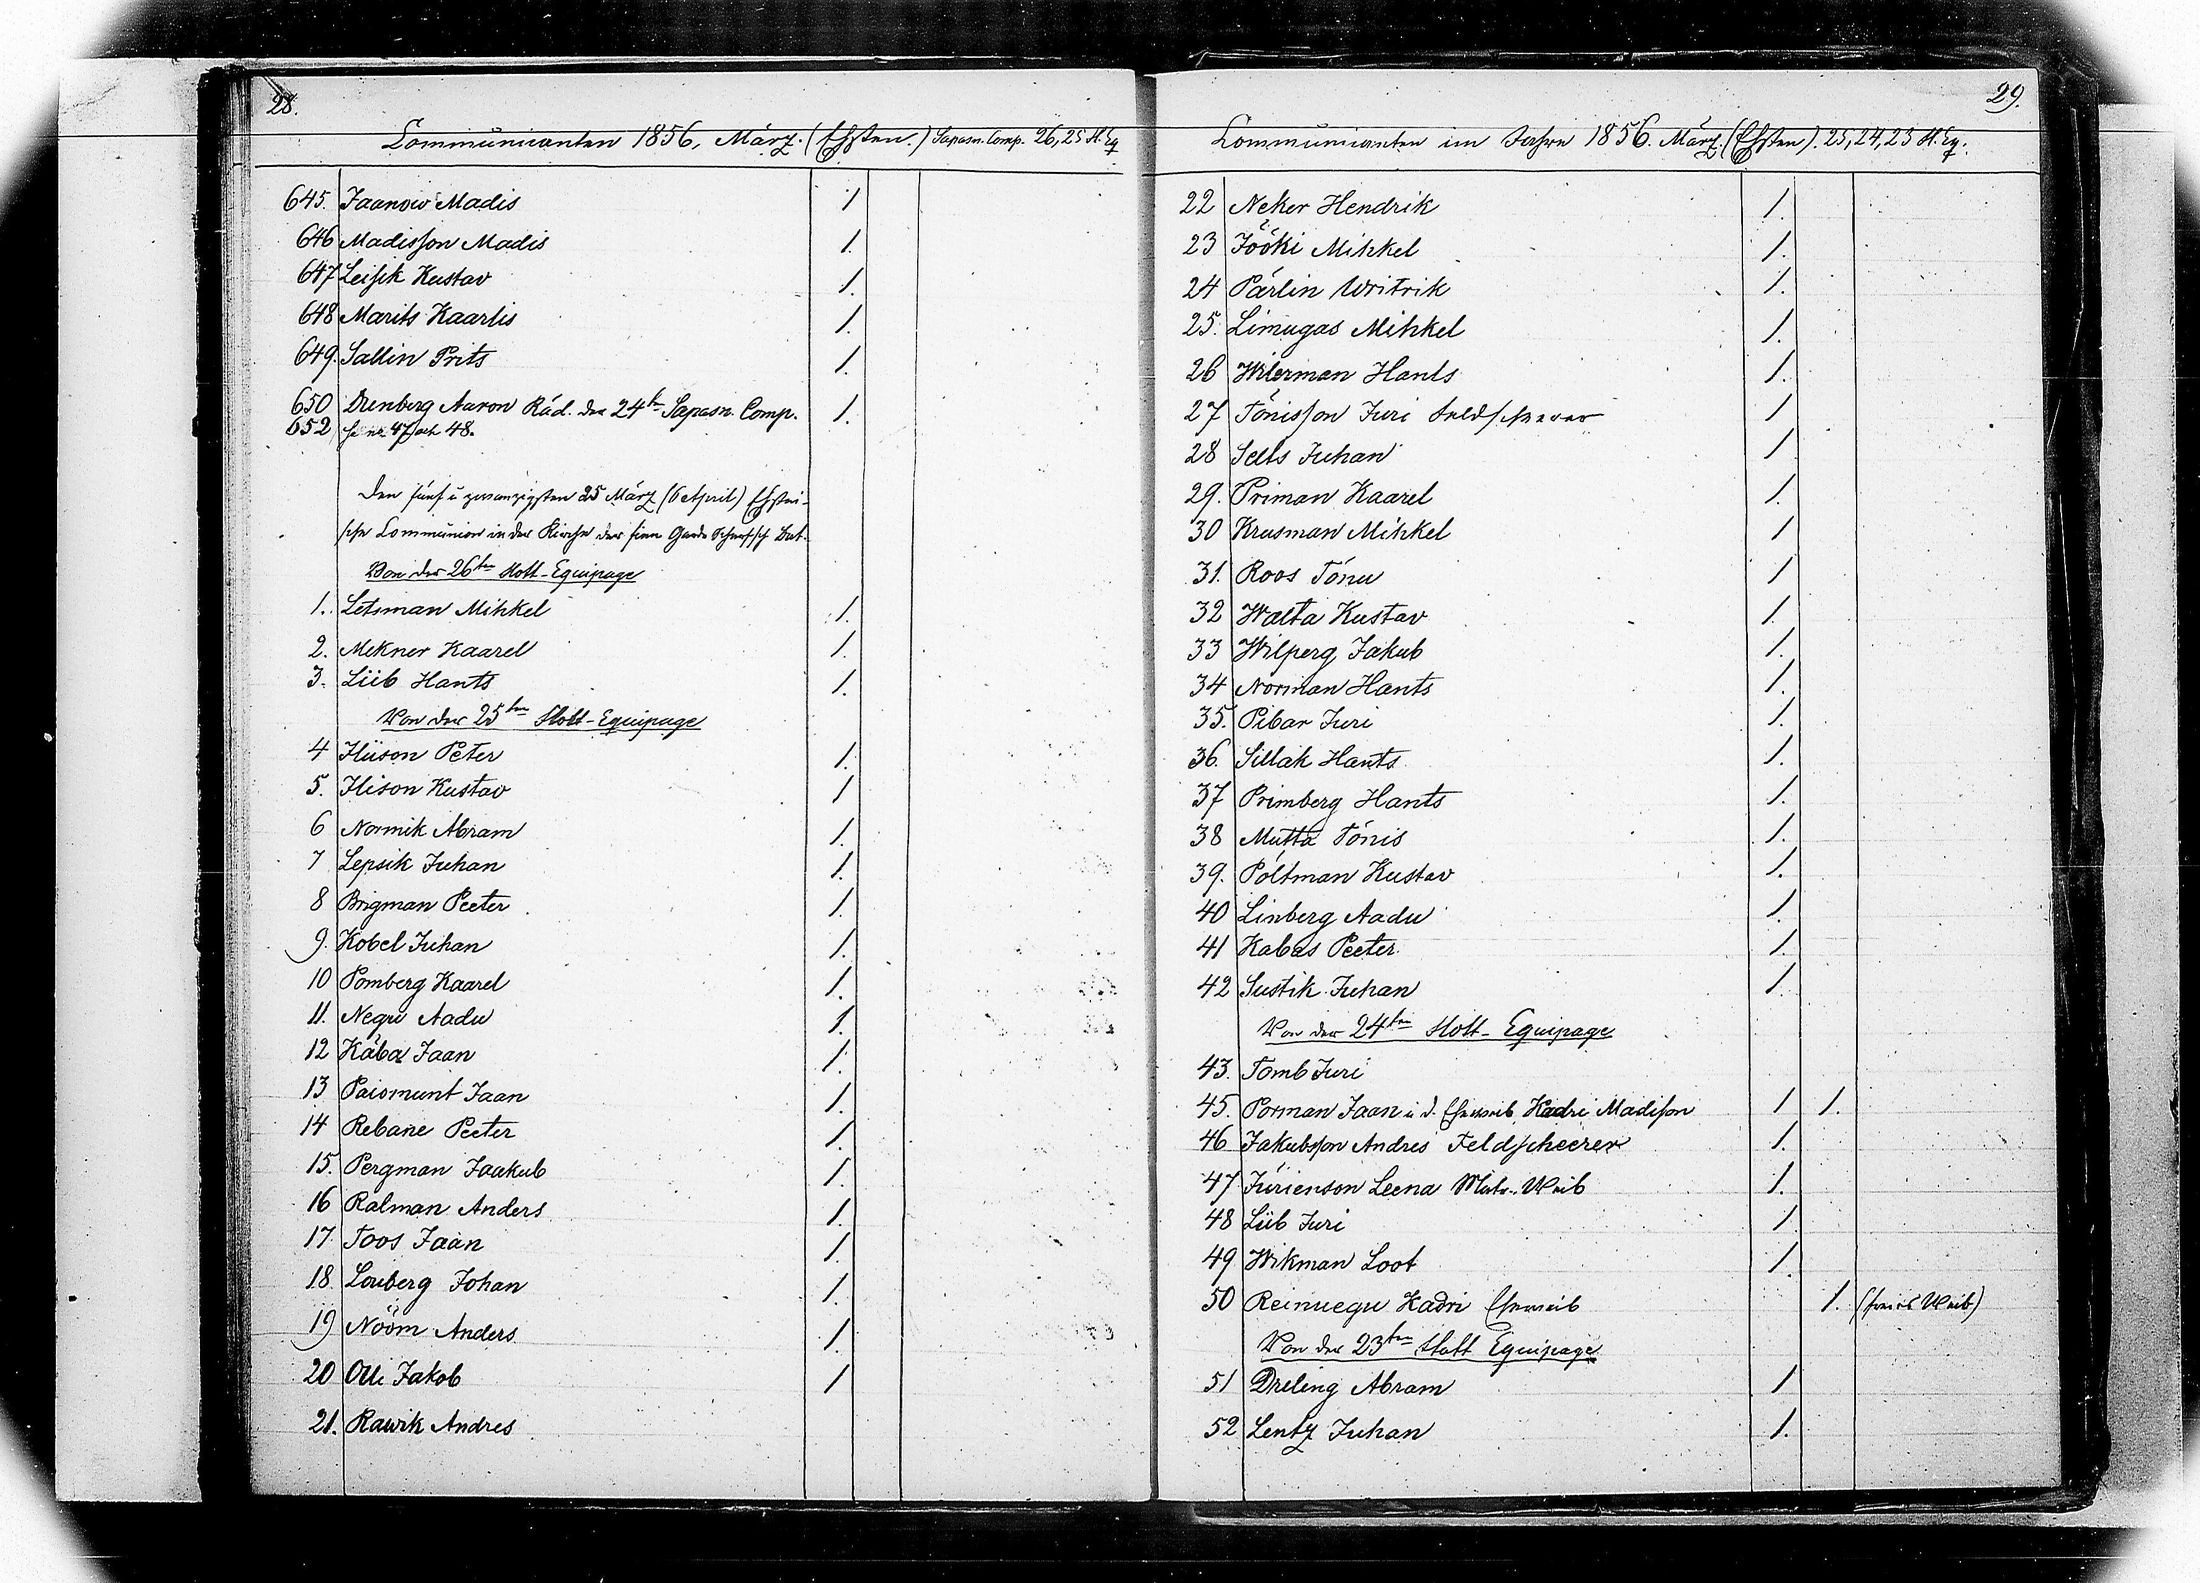 28.
Communicanten 1856, März. (Ehsten.) Sapasn. Comp. 26, 25 Fl. Eq
645. Jaanow Madis 1
646 Madisson Madis 1.
647 Leisik Kustav 1.
648 Marits Kaarlis 1.
649. Sallin Prits 1.
650 Drenberg Aaron Räd. der 24ten Sapasn. Comp. 1.
652 48.
Den fünf u zwanzigsten 25 März (6 April) Ehstni-
sche Communion in der Kirche der finn Garde Scharfsch Bat.
Von der 26ten Flott-Equipage
1. Letsman Mihkel 1.
2. Mekner Kaarel 1.
3. Liib Hants 1.
Von der 25ten Flott-Equipage
4 Hüson Peter 1.
5. Hison Kustav 1
6 Normik Abram 1.
7 Lepsik Juhan 1.
8 Brigman Peeter 1.
9. Kobel Juhan 1.
10 Pomberg Kaarel 1.
11. Negu Aadu 1.
12 Käba Jaan 1.
13 Paiomunt Jaan 1.
14 Rebane Peeter 1.
15. Pergman Jaakub 1.
16 Ralman Anders 1.
17. Toos Jaan 1.
18. Louberg Johan 1.
19) Nööm Anders 1.
20 Olli Jakob 1
21. Rawik Andres
29.
Communicanten im Jahre 1856. März. (Ehsten). 25, 24, 23 Fl. Eq.
22 Neker Hendrik 1.
23 Jööki Mihkel 1.
24 Pärlin Writrik 1.
25. Limugas Mihkel 1.
26 Wilerman Hants 1.
27 Tõnisson Juri Feldscherer 1
28 Selts Juhan 1
29. Priman Kaarel 1.
30 Krusman Mihkel 1
31. Roos Tõnu 1
32 Walta Kustav 1.
33 Wilperg Jakub 1.
34 Norman Hants 1.
35. Pibar Juri 1.
36. Sillak Hants 1.
37 Primberg Hants 1.
38 Mutta Tõnis 1.
39. Põltman Kustav 1.
40 Linberg Aadu 1.
41 Kabas Peeter 1.
42 Sustik Juhan 1.
Von der 24ten Flott-Equipage
43. Tomb Juri
45. Porman Jaan u d. Eheweib Kadri Madison 1 1.
46 Jakubsson Andres Feldscheerer 1.
47 Jürienson Leena Matr. Weib 1.
48 Liib Juri 1
49 Wikman Loot 1.
50 Reinuegu Kadri Eheweib 1. Weib)
Von der 23ten Flott Equipage
51 Dreling Abram 1
52 Lentz Juhan 1.